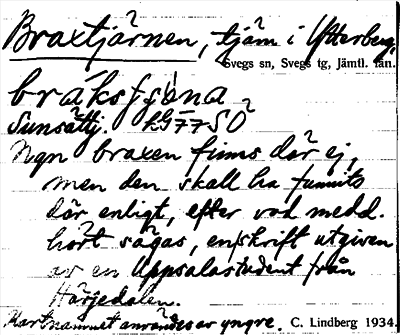 Braxtjärnen, tjärn i Ytterberg,
Svegs sn, Svegs tg, Jämtl. län.
Sunsättj. kG77SO
Ngn braxen finns där ej,
men den skall ha funnits
där enligt, efter vad medd.
hört sägas, en skrift utgiven
av en Uppsalastudent från
Härjedalen.
Kartnamnet användes av yngre. C. Lindberg 1934.